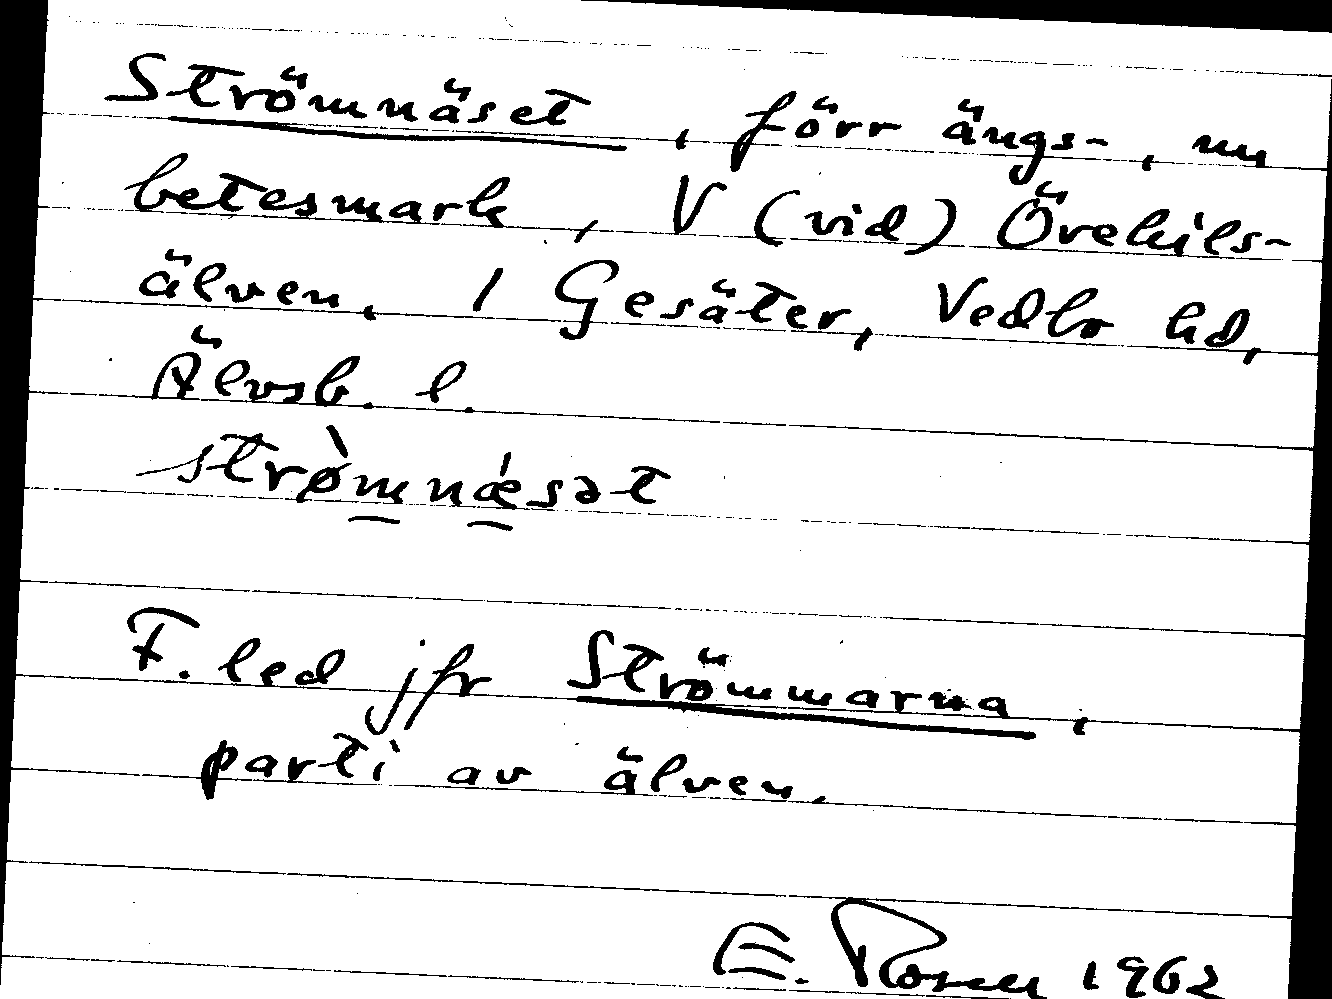 Strömnäset, förr ängs-, nu
betesmark, V (vid) Örekils-
älven. 1 Gesäter, Vedbo hd,
Älvsb. l.
strø̀mnǽsət
F. led jfr Strömmarna,
parti av älven.
E. Rosell 1962